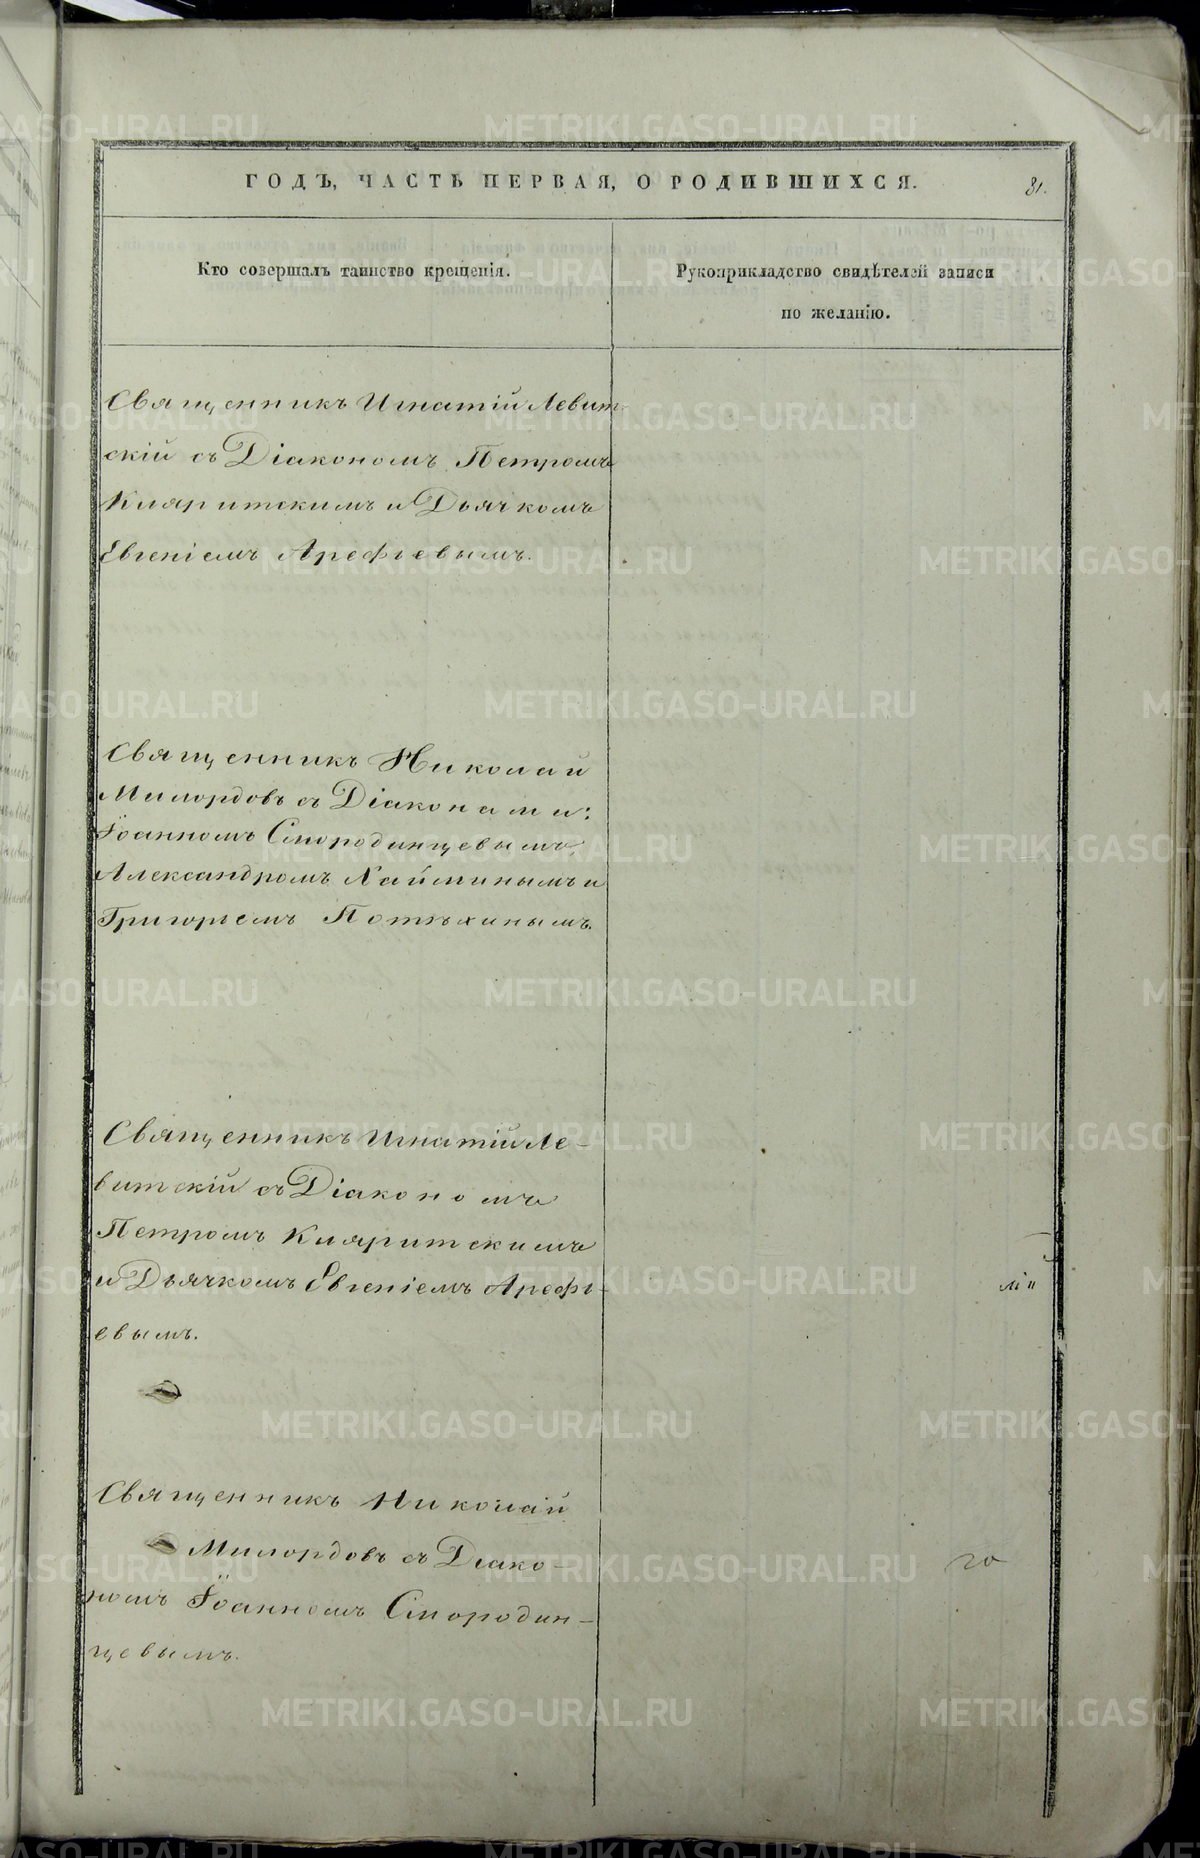 ГОДЪ, ЧАСТЬ ПЕРВАЯ, О РОДИВШИХСЯ.
81.
Кто совершалъ таинство крещенія.
Рукоприкладство свидѣтелей записи
по желанію.
Священникъ Игнатій Левит-
скій съ Діакономъ Петромъ
и Дьячкомъ
Евгеніемъ Арефьевымъ.
Священникъ Николай
Милордовъ съ Діаконами:
Іоанномъ Смородинцевымъ,
Александромъ Хайминымъ и
Григорьемъ Потѣхинымъ.
Священникъ Игнатій Ле-
витскій съ Діакономъ
Петромъ
и Дьячкомъ Евгеніемъ Арефь-
евымъ.
Священникъ Николай
Милордовъ съ Діако-
номъ Іоанномъ Смородин-
цевымъ.
METRIKI.GASO-URAL.RU